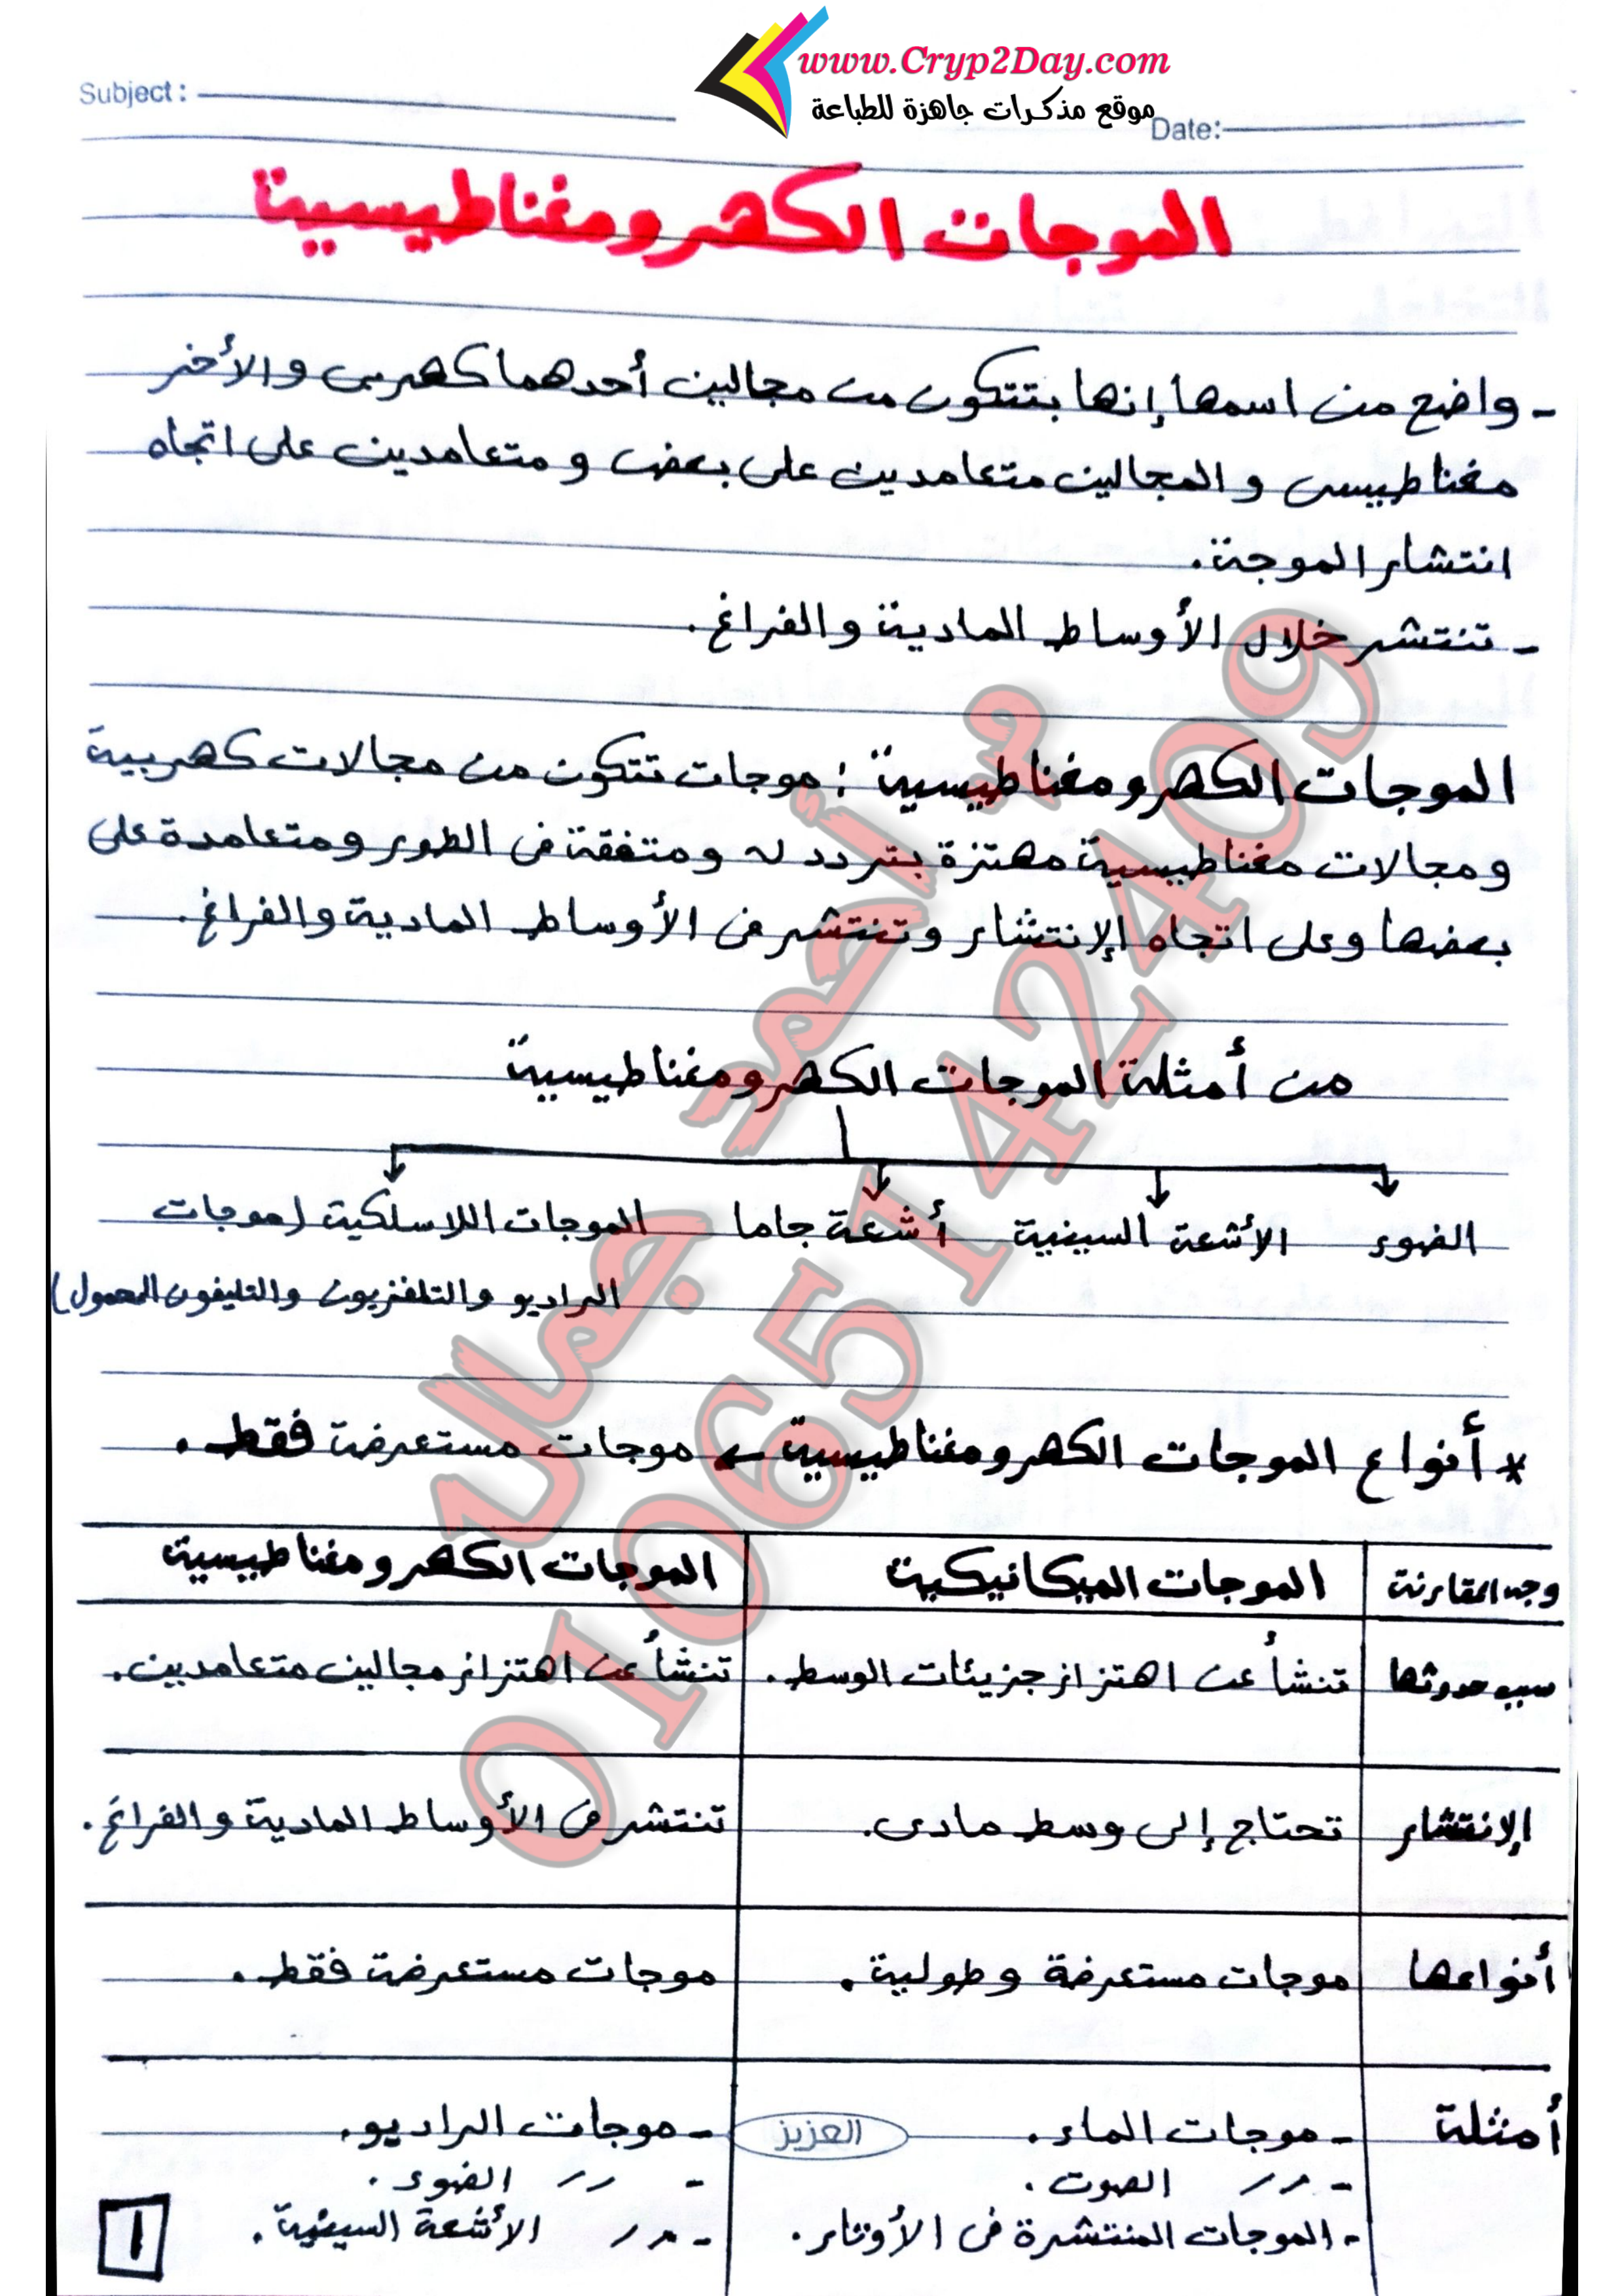 www.Cryp2Day.com
موقع مذكرات جاهزة للطباعة
Subject :
Date:
الموجات الكهرومغناطيسية
- واضح من اسمها إنها بتتكون من مجالين أحدهما كهربى والأخر
مغناطيسى والمجالين متعامدين على بعض ومتعامدين على اتجاه
انتشار الموجة.
- تنتشر خلال الأوساط المادية والفراغ.
الموجات الكهرومغناطيسية : موجات تتكون من مجالات كهربية
ومجالات مغناطيسية مهتزة بتردد له ومتفقة فى الطور ومتعامدة على
بعضها وعلى اتجاه الإنتشار وتنتشر فى الأوساط المادية والفراغ.
من أمثلة الموجات الكهرومغناطيسية
الضوء الأشعة السينية أشعة جاما الموجات اللاسلكية (موجات
الراديو والتلفزيون والتليفون المحمول)
* أنواع الموجات الكهرومغناطيسية ← موجات مستعرضة فقط.
وجه المقارنة الموجات الميكانيكية الموجات الكهرومغناطيسية
سبب حدوثها تنشأ عن اهتزاز جزيئات الوسط. تنشأ عن اهتزاز مجالين متعامدين.
الإنتشار تحتاج إلى وسط مادى. تنتشر فى الأوساط المادية والفراغ.
أنواعها موجات مستعرضة وطولية. موجات مستعرضة فقط.
أمثلة - موجات الماء. - موجات الراديو.
- 〃 الصوت. - 〃 الضوء.
- الموجات المنتشرة فى الأوتار. - 〃 الأشعة السينية.
العزيز
1
م أحمد جمال
01065142409